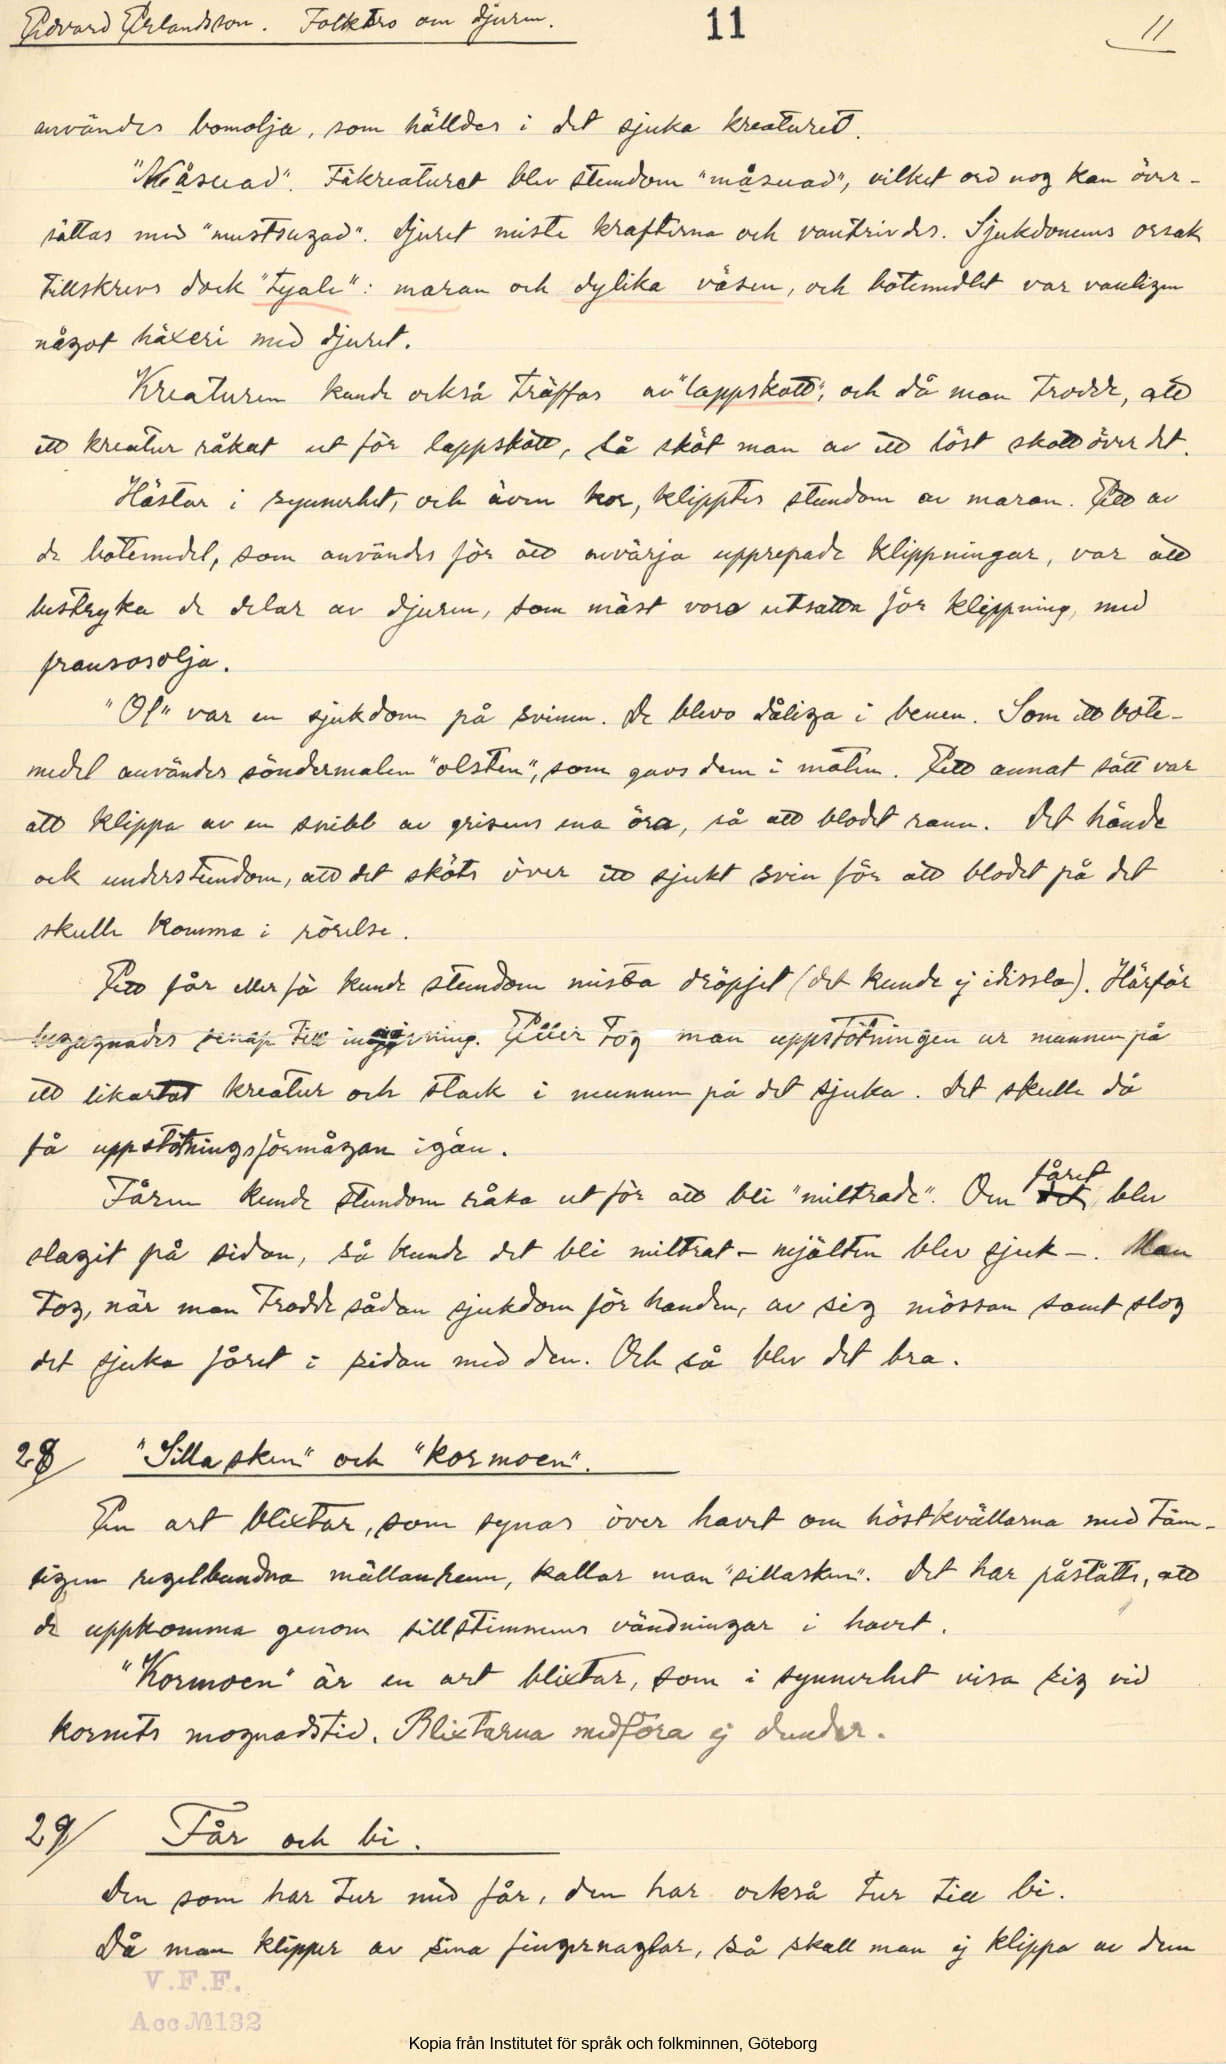 Edvard Erlandsson. Folktro om djuren.
11
11
användes bomolja, som hälldes i det sjuka kreaturet.
"Måsuad". Fäkreaturet blev stundom "måsuad", vilket ord nog kan över-
sättas med "mustsugad". Djuret miste krafterna och vantrivdes. Sjukdomens orsak
tillskrevs dock "tyale": maran och dylika väsen, och botemedlet var vanligen
något häxeri med djuret.
Kreaturen kunde också träffas av "lappskott", och då man trodde, att
ett kreatur råkat ut för lappskott, så sköt man av ett löst skott över det.
Hästar i synnerhet, och även kor, klipptes stundom av maran. Ett av
de botemedel, som användes för att avvärja upprepade klippningar, var att
bestryka de delar av djuren, som mäst voro utsatta för klippning, med
fransosolja.
"Ol" var en sjukdom på svinen. De blevo dåliga i benen. Som ett bote-
medel användes söndermalen "olsten", som gavs dem i maten. Ett annat sätt var
att klippa av en snibb av grisens ena öra, så att blodet rann. Det hände
ock understundom, att det sköts över ett sjukt svin för att blodet på det
skulle komma i rörelse.
Ett får eller fä kunde stundom mista dröpjet (det kunde ej idissla). Härför
begagnades senap till ingivning. Eller tog man uppstötningen ur munnen på
ett likartat kreatur och stack i munnen på det sjuka. Det skulle då
få uppstötningsförmågan igän.
Fåren kunde stundom råka ut för att bli "miltrade". Om fåret blev
slagit på sidan, så kunde det bli miltrat – mjälten blev sjuk –. Man
tog, när man trodde sådan sjukdom för handen, av sig mössan samt slog
det sjuka fåret i sidan med den. Och så blev det bra.
28/ "Sillasken" och "kormoen".
En art blixtar, som synas över havet om höstkvällarna med täm-
ligen regelbundna mällanrum, kallar man "sillasken". Det har påståtts, att
de uppkomma genom sillstimmens vändningar i havet.
"Kormoen" är en art blixtar, som i synnerhet visa sig vid
kornets mognadstid. Blixtarna medföra ej dunder.
29/ Får och bi.
Den som har tur med får, den har också tur till bi.
Då man klipper av sina fingernaglar, så skall man ej klippa av dem
V.F.F.
Acc № 132
Kopia från Institutet för språk och folkminnen, Göteborg